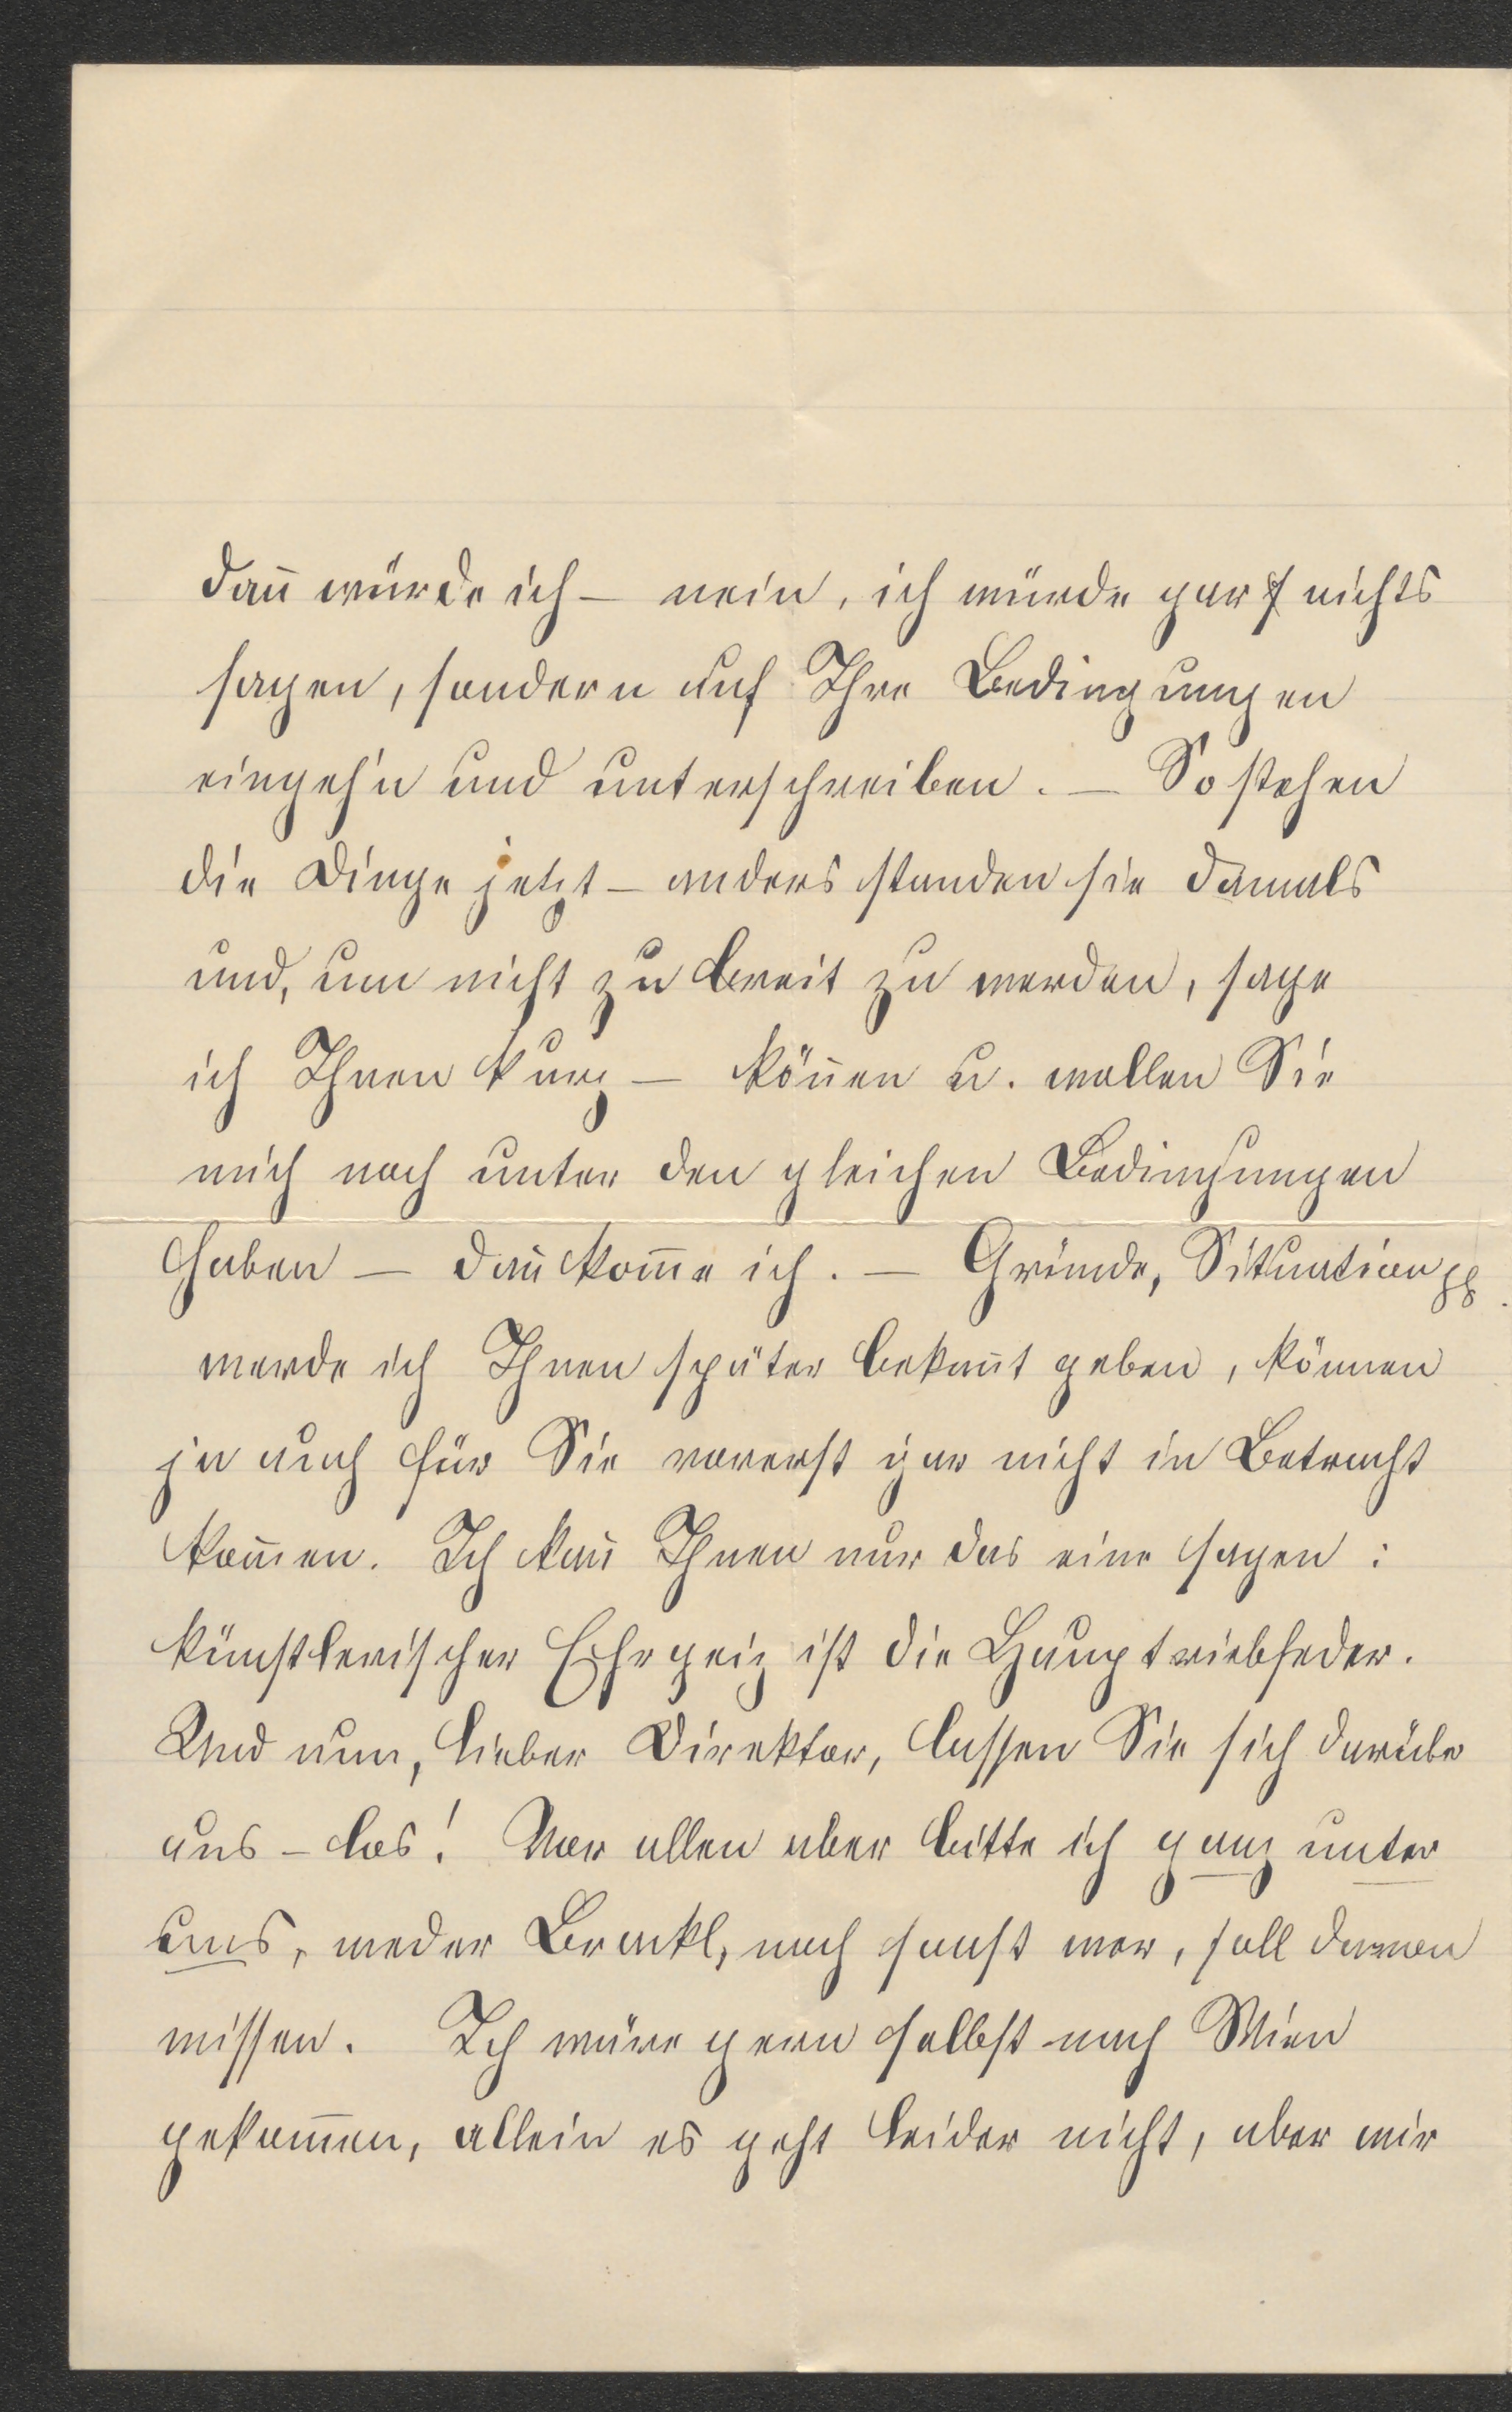 dan̄ würde ich – nein, ich würde gar nichts
sagen, sondern auf Ihre Bedingungen
eingeh'n und unterschreiben. – So stehen
die Dinge jetzt – anders standen sie damals
und, um nicht zu breit zu werden, sage
ich Ihnen kurz – kön̄en u. wollen Sie
mich noch unter den gleichen Bedingungen
haben – dan̄ kom̄e ich. – Gründe, Situation pp.
werde ich Ihnen später bekan̄t geben, können
ja auch für Sie vorerst gar nicht in Betracht
kom̄en. Ich kan̄ Ihnen nur das eine sagen:
künstlerischer Ehrgeiz ist die Hauptriebfeder.
Und nun, lieber Direktor, lassen Sie sich darübe
aus – los! Vor allen aber bitte ich ganz unter
uns, weder Brackl, noch sonst wer, soll davon
wissen. Ich wäre gern selbst nach Wien
gekom̄en, allein es geht leider nicht, aber wir